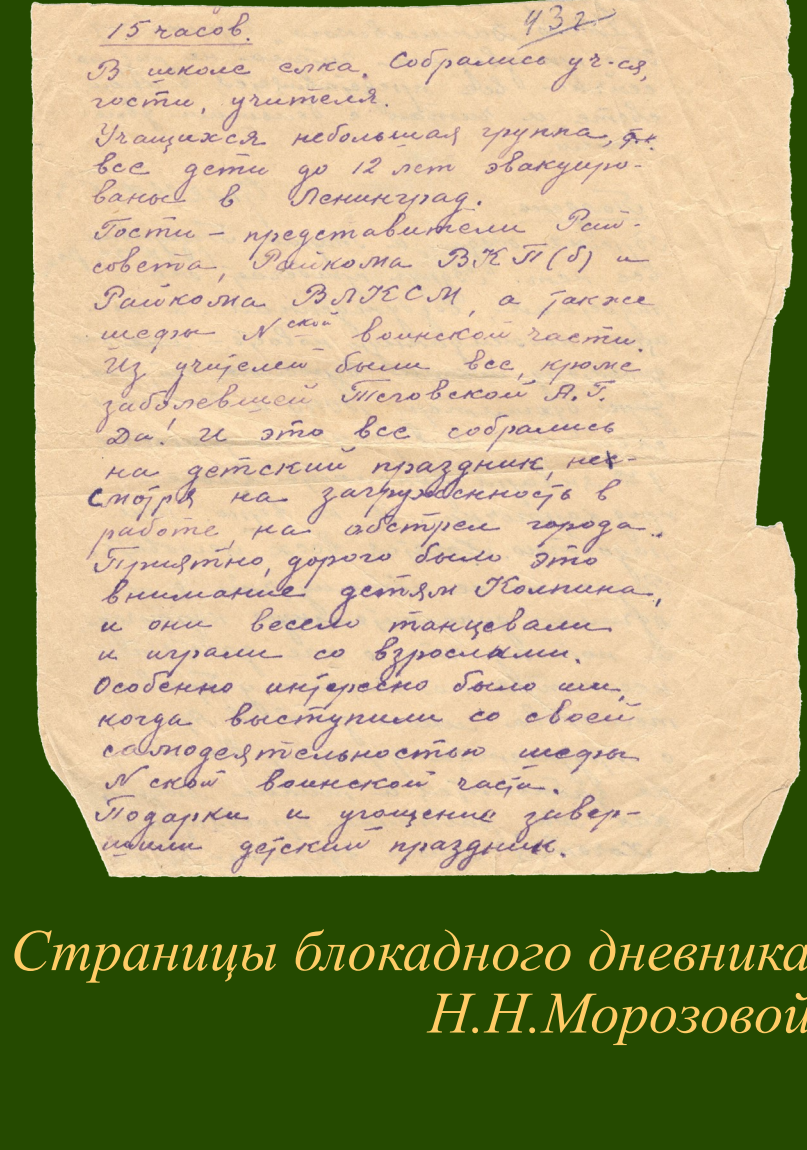 15 часов.
43 г
В школе елка. Собрались уч-ся,
гости, учителя.
Учащихся небольшая группа, т.к.
все дети до 12 лет эвакуиро-
ваны в Ленинград.
Гости – представители Рай-
совета, Райкома ВКП(б) и
Райкома ВЛКСМ, а также
шефы Nской воинской части.
Из учителей были все, кроме
заболевшей А.Г.
Да! И это все собрались
на детский праздник, нес-
смотря на загруженность в
работе, на обстрел города.
Приятно, дорого было это
внимание детям Колпина,
и они весело танцевали
и играли со взрослыми.
Особенно интересно было им,
когда выступили со своей
самодеятельностью шефы
Nской воинской части.
Подарки и угощение завер-
шили детский праздник.
Страницы блокадного дневника
Н.Н.Морозовой